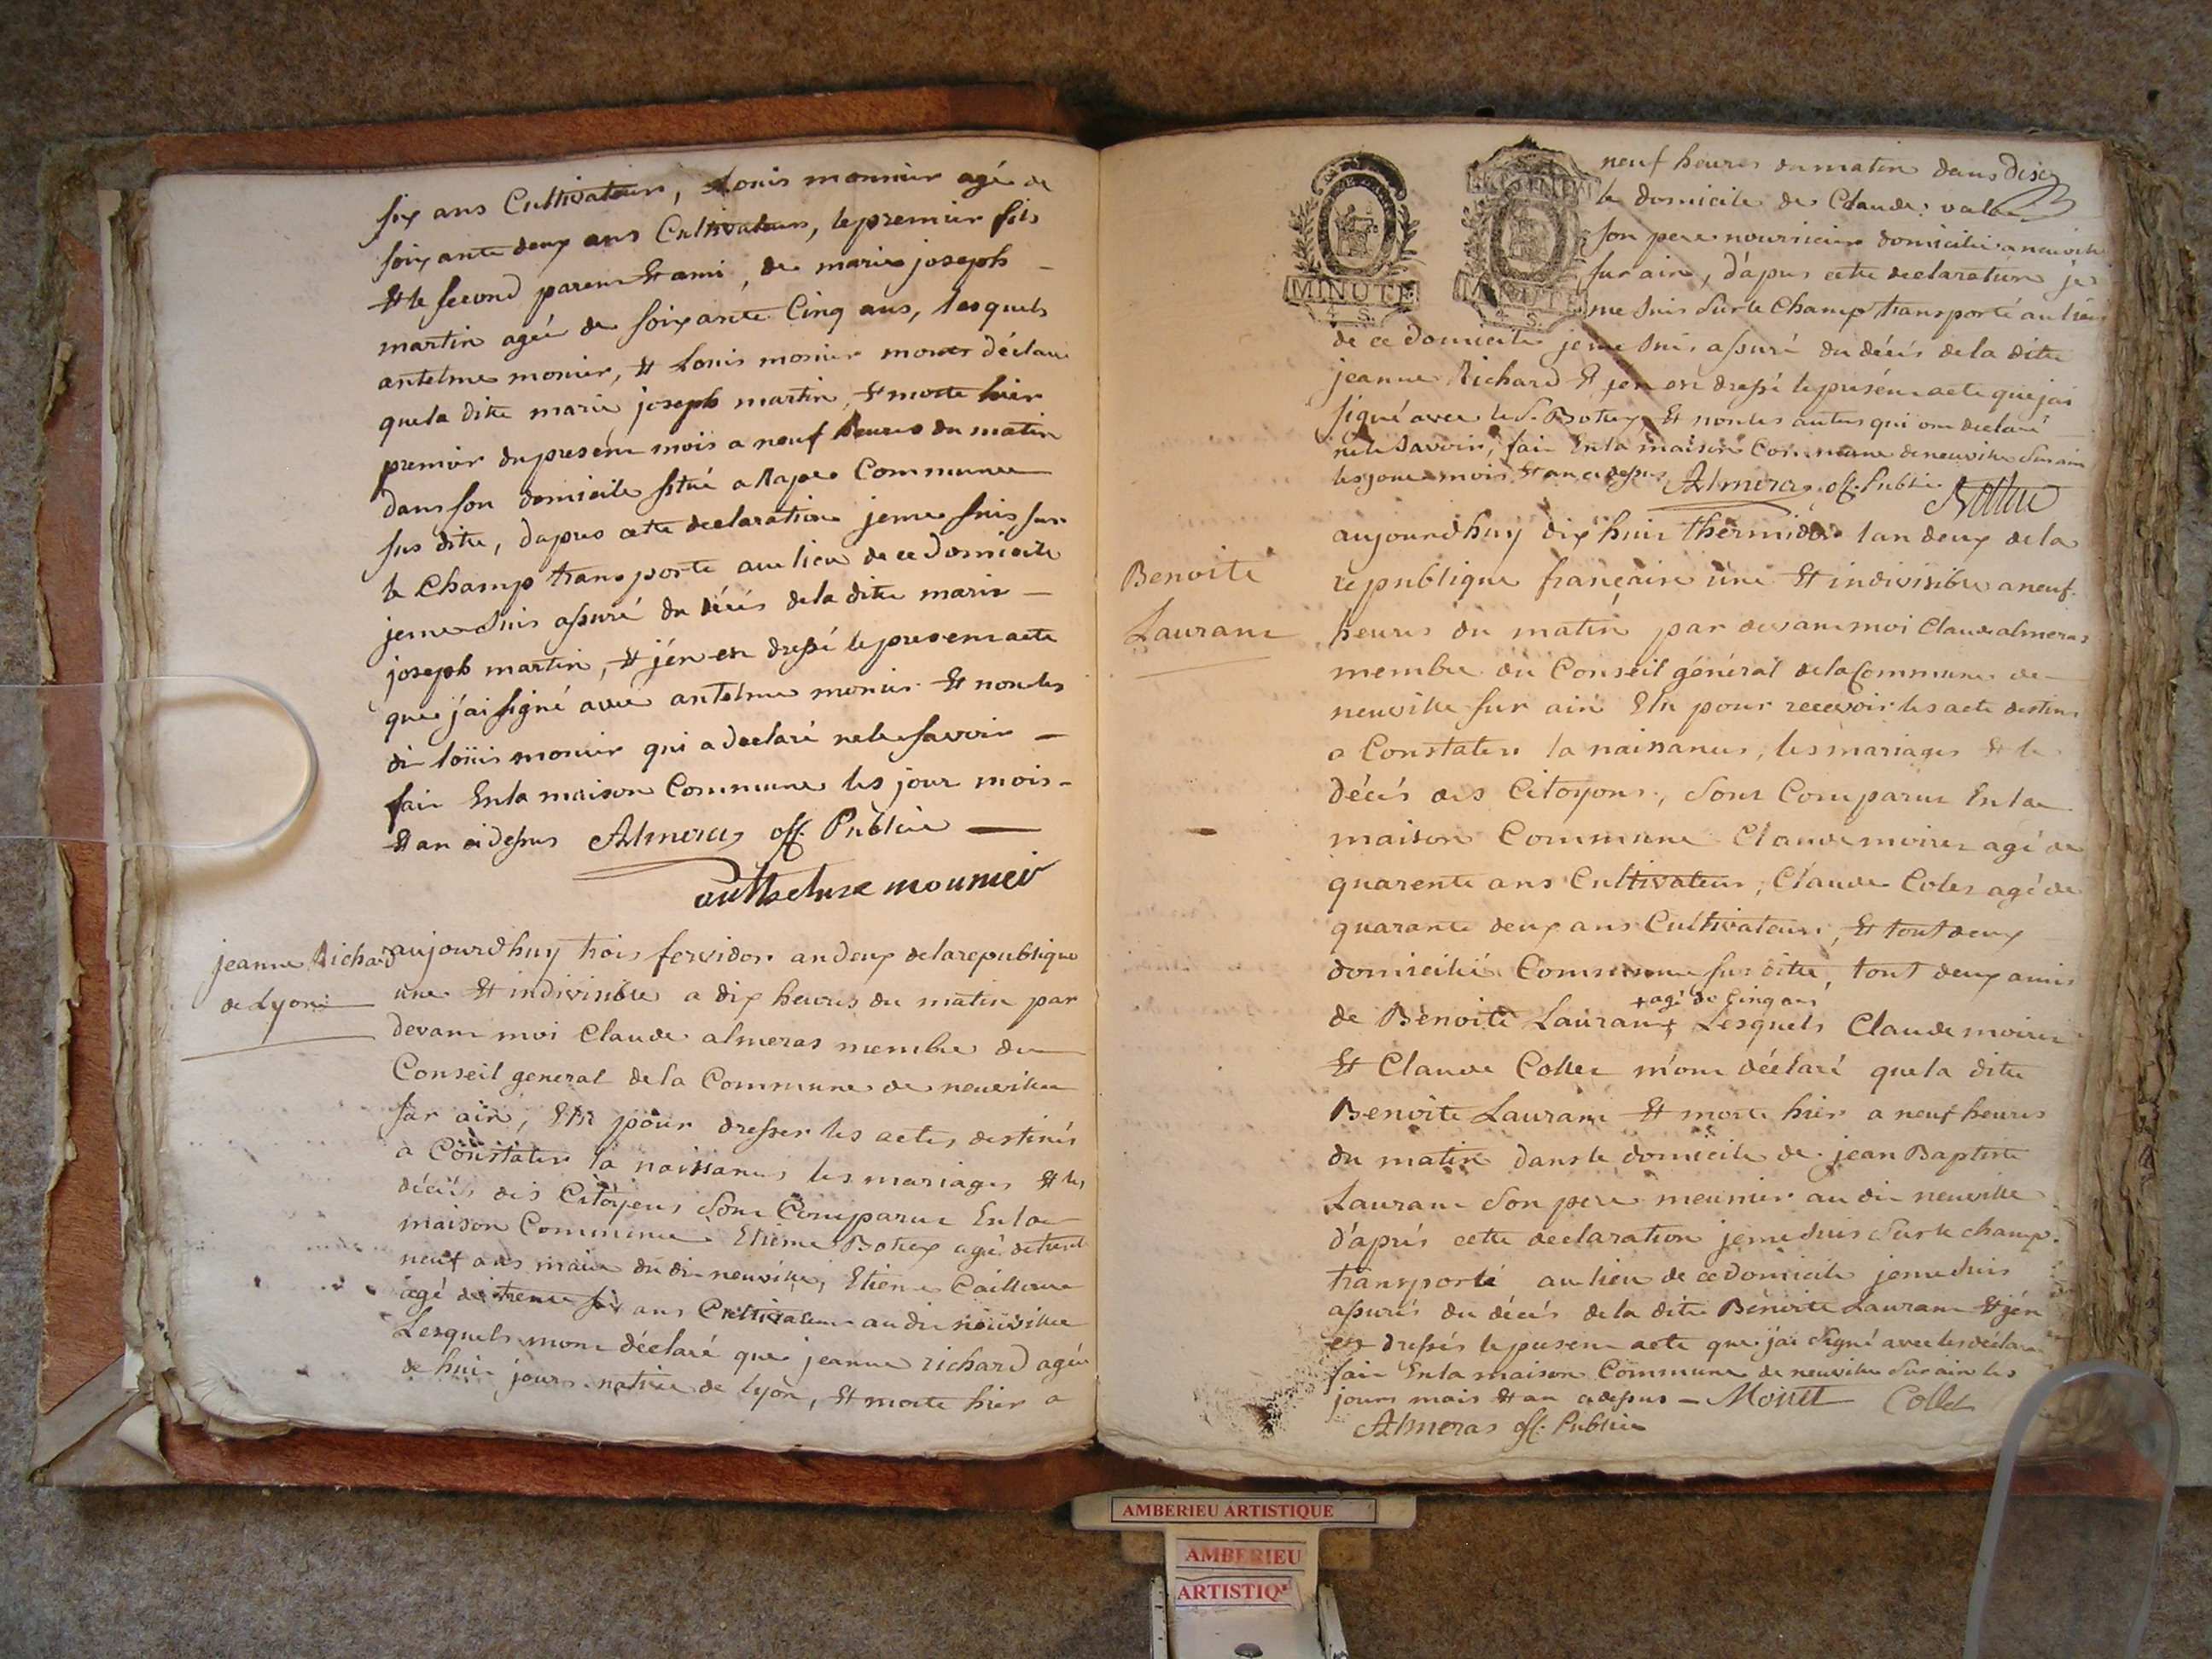 six ans Cultivateur, Louis monnier agé de
soixante deux ans Cultivateur, le premier fils
Et le second parent Et ami, de marie joseph
martin agée de soixante Cinq ans, lesquels
antelme monier, Et Louis monier mont déclaré
que la dite marie joseph martin, Et morte hier
premier du present mois a neuf heures du matin
dans son domicile situé a Rape Commune
sus dite, dapres cette declaration je me suis sur
le Champ transporté au lieu de ce domicile
je me suis assuré du décés de la dite marie
joseph martin, Et jén en dressé le present acte
que j'ai signé avec antelme monier Et non les
dit loüis monier qui a declaré ne le savoir
fait En la maison Commune les jour mois
Et an ci dessus Almeras off. Public
anthelme mounier
jeanne Richard
de Lyon
aujourdhuy trois fervidor an deux de la republique
une Et indivisible a dix heures du matin par
devant moi Claude almeras membre du
Conseil general de la Commune de neuville
sur ain, Elu pour dresser les actes destinés
a Constater la naissances les mariages Et les
décés des Citoyens Sont Comparut En la
maison Commune Etiene Bottex agé de trente
neuf ans maire du dit neuville, Etiene Cailloue
agé de trente six ans Cultivateur au dit neuville
Lesquels mont déclaré que jeanne richard agée
de huit jours native de lyon, Et morte hier a
MINUTE
4 S.
MINUTE
4 S.
neuf heures du matin dans
le domicile de Claude
son pere nourricier domicilié a neuville
sur ain, d'apres cette declaration je
me suis sur le Champ transporté au lieu
de ce domicile je me suis assuré du décés de la dite
jeanne Richard Et jen en dressé le présent acte que jai
signé avec le S. Bottex Et non les autres qui ont declaré
ne le savoir, fait En la maison Commune de neuville sur ain
les jour mois Et an ci dessus Almeras off. Public
Benoite
Laurant
aujourdhuy dix huit thermidor lan deux de la
republique française une Et indivisible a neuf
heures du matin par devant moi Claude almeras
membre du Conseil général de la Commune de
neuville sur ain Elu pour recevoir les acte destiné
a Constater la naissances, les mariages Et le
décés des Citoyens, Sont Comparut En la
maison Commune Claude moirer agé de
quarente ans Cultivateur, Claude Coler agé de
quarante deux ans Cultivateur, Et tout deux
domicilié Commune sus dite, tout deux amis
+ agé de Cinq ans
de Benoite Laurant + Lesquels Claude moirer
Et Claude Coller m'ont déclaré que la dite
Benoite Laurant Et morte hier a neuf heures
du matin dans le domicile de jean Baptiste
Laurant Son pere meunier au dit neuville
d'aprés cette declaration je me suis sur le champ
transporté au lieu de ce domicile je me suis
assuré du décés de la dite Benoite Laurant Et jén
en dressés le present acte que j'ai signé avec les déclarant
fait En la maison Commune de neuville sur ain les
jours mois Et an ci dessus - Collet
Almeras off. Public
AMBERIEU ARTISTIQUE
AMBERIEU
ARTISTIQUE